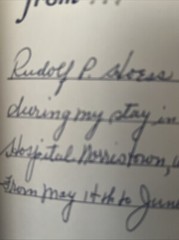 from...
Rudolf P. Hoess
during my stay in
Hospital Norristown,
From May 14th to June